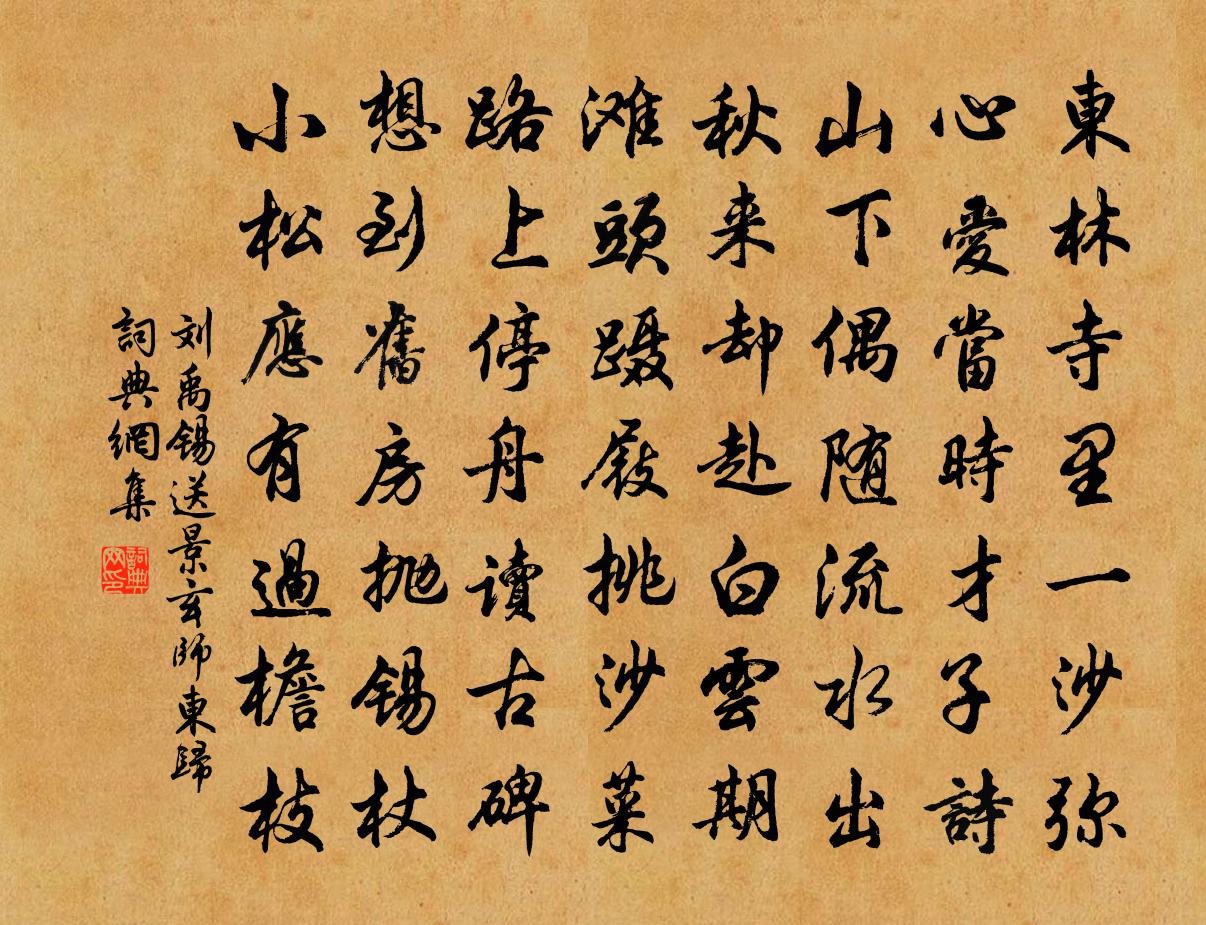 東林寺里一沙弥
心愛當時才子詩
山下偶随流水出
秋来却赴白雲期
滩頭蹑屐挑沙菜
路上停舟讀古碑
想到舊房抛锡杖
小松應有過檐枝
刘禹锡送景玄師東歸
詞典網集
詞典网印